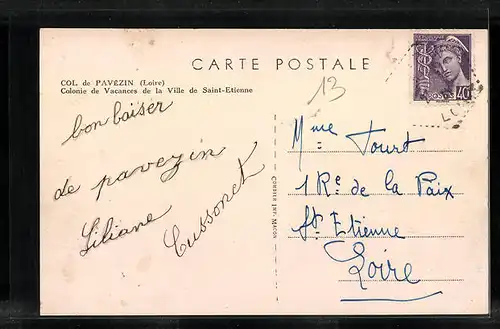 CARTE POSTALE
COL de PAVÉZIN (Loire)
Colonie de Vacances de la Ville de Saint-Etienne
13
bon baiser
de pavezin
Liliane
Cussonet
COMBIER IMP. MACON
40
LO
Mme Tourt
1 Re de la Paix
St Etienne
Loire